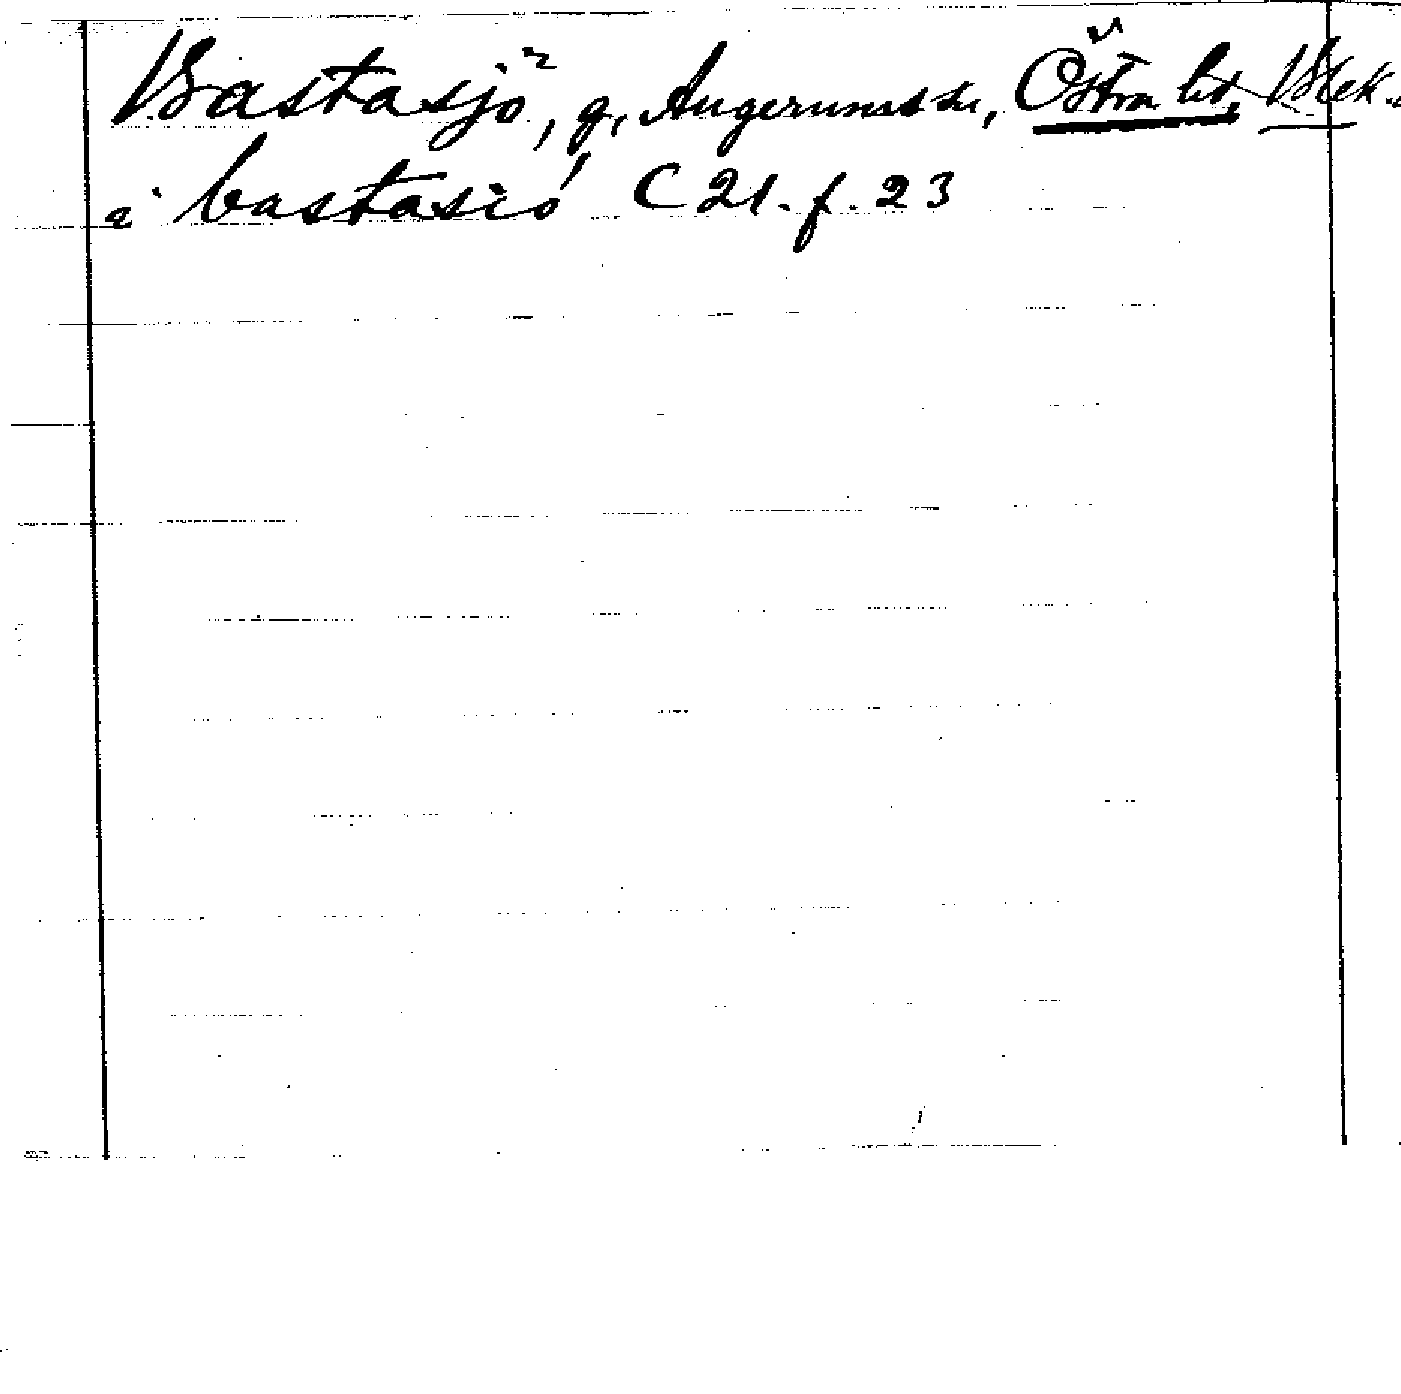 Bastasjö, g, Augerums sn, Östra hd, Blek.
i bastasió C 21. f. 23